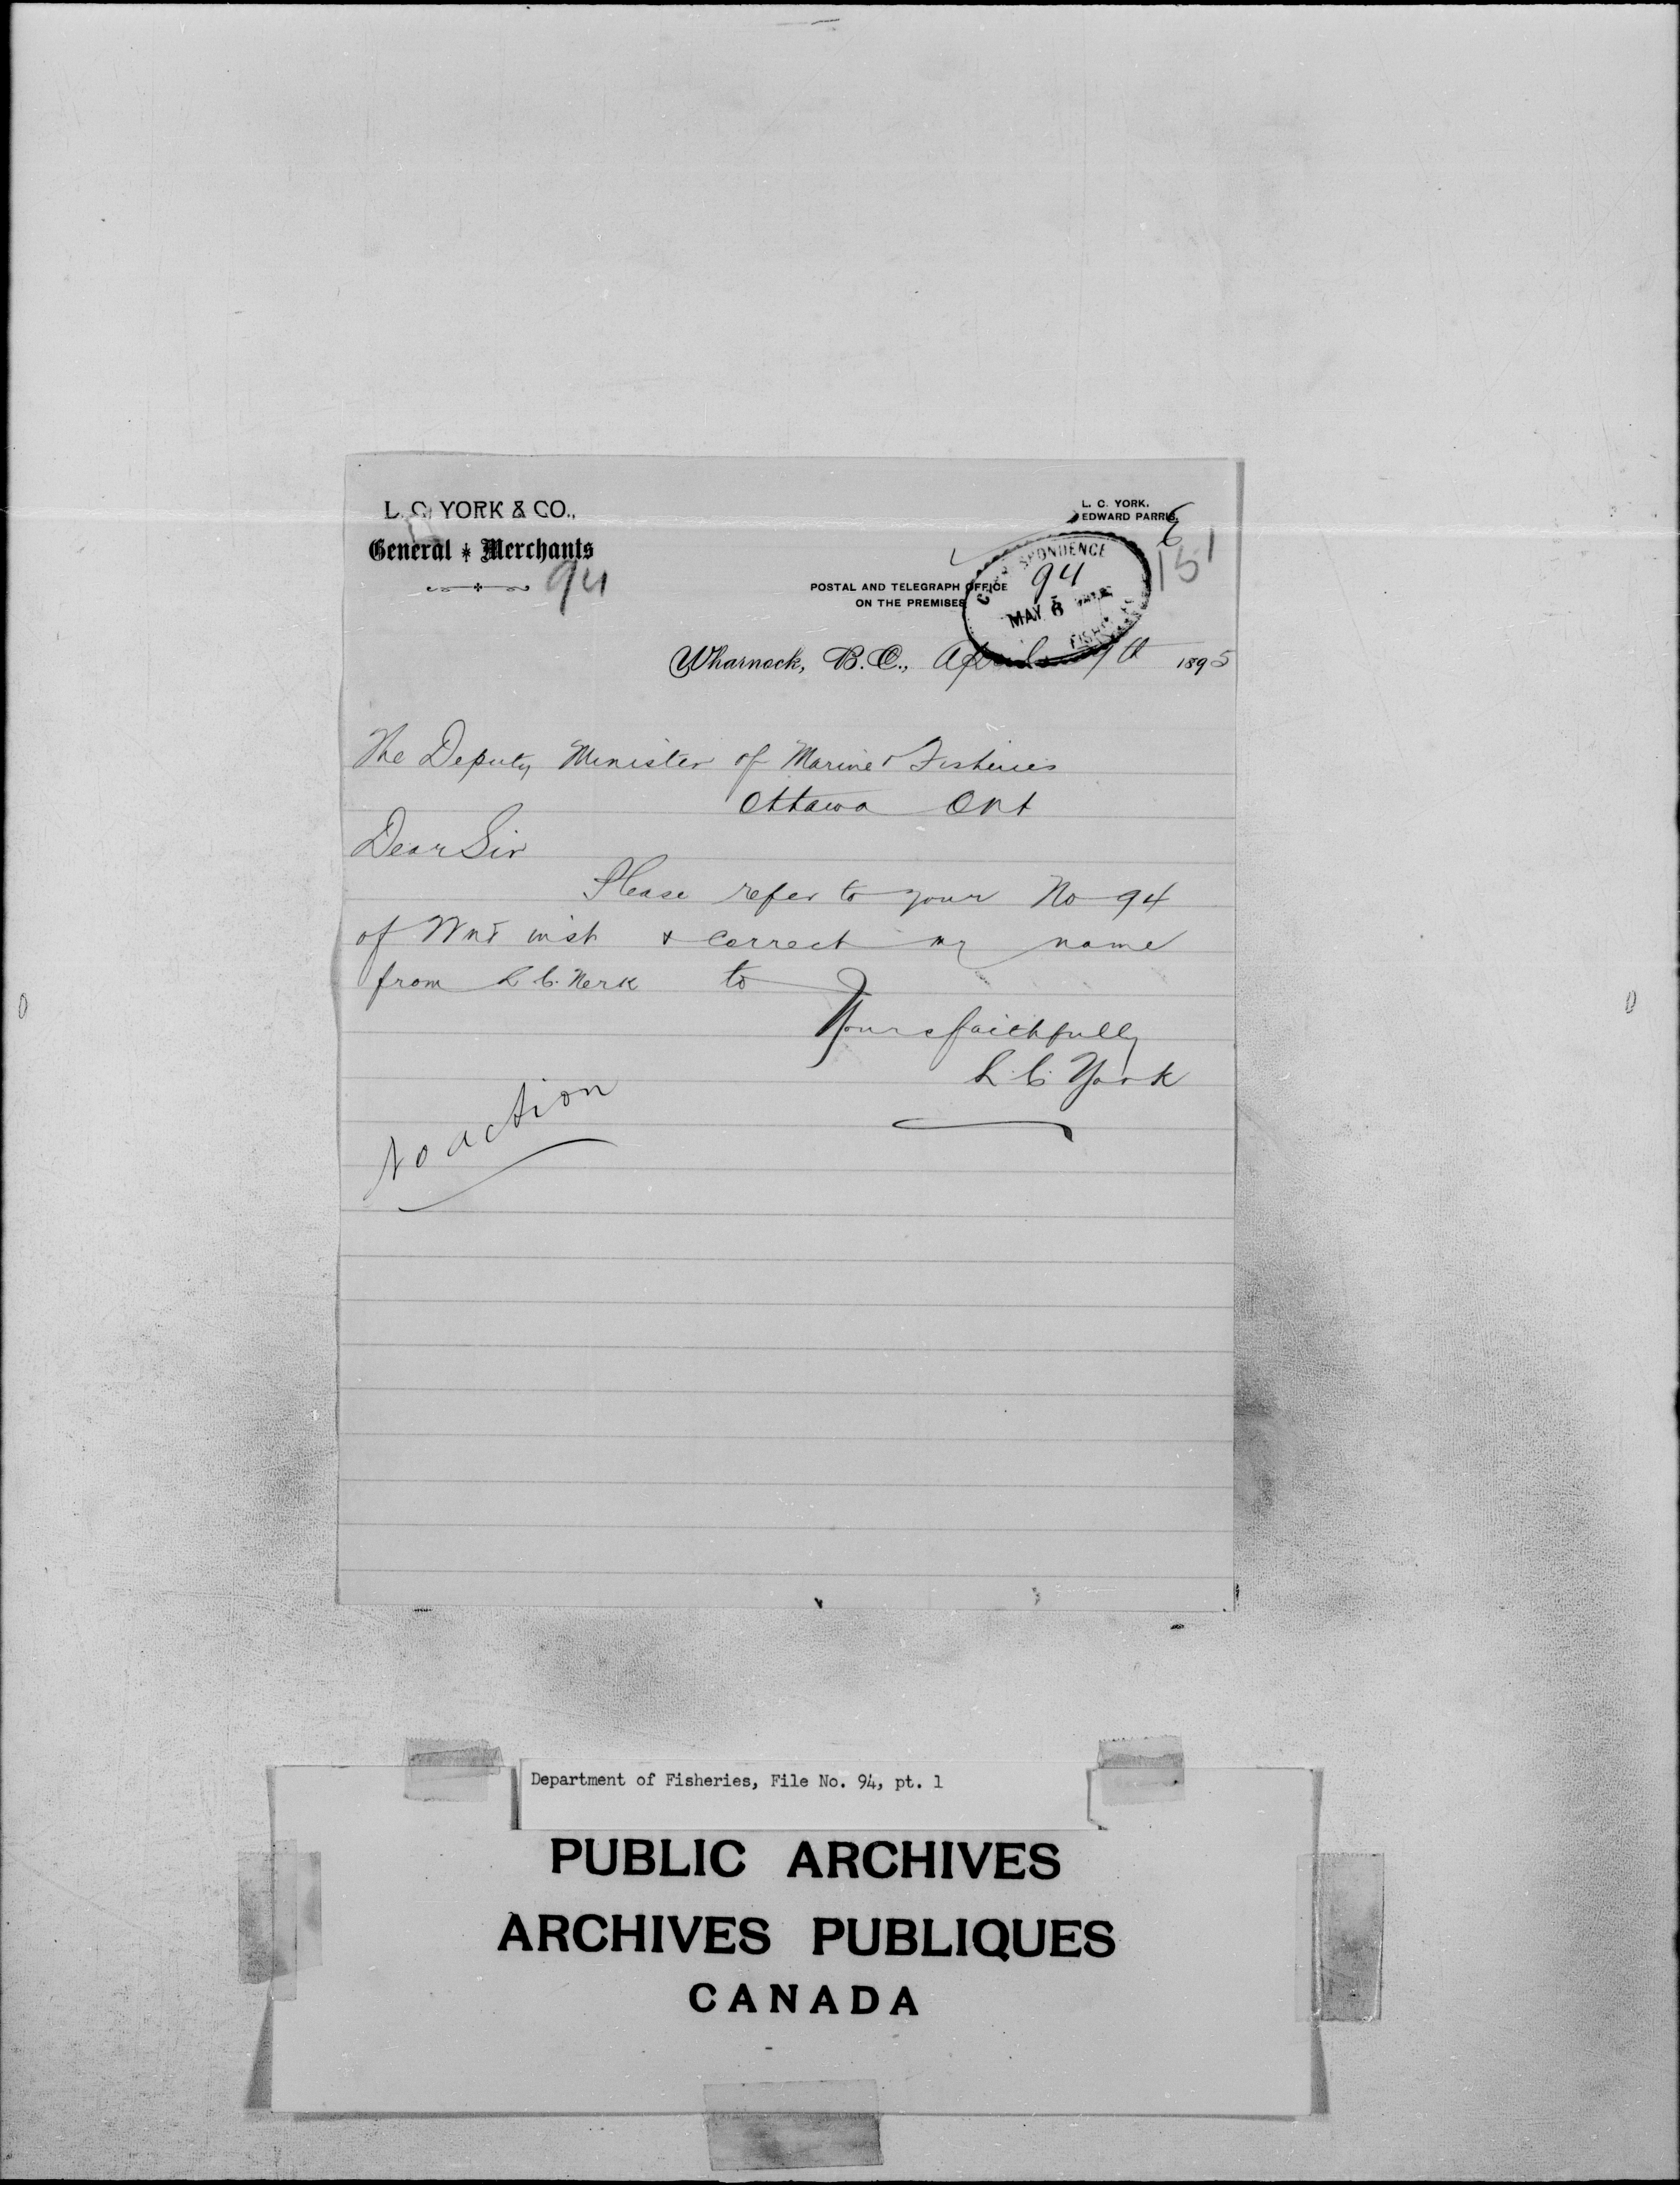 L. C. YORK & CO.,
General * Merchants
94
L. C. YORK.
EDWARD PARRIS.
E
151
POSTAL AND TELEGRAPH OFFICE
ON THE PREMISES
CORRESPONDENCE
94
MAY 6
Wharnock, B.C., April 1895
The Deputy Minister of Marine & Fisheries
Ottawa Ont
Dear Sir
Please refer to your No 94
of inst & correct my name
from L C. Nerk to
Yours faithfully
L. C. York
No action
Department of Fisheries, File No. 94, pt. 1
PUBLIC ARCHIVES
ARCHIVES PUBLIQUES
CANADA